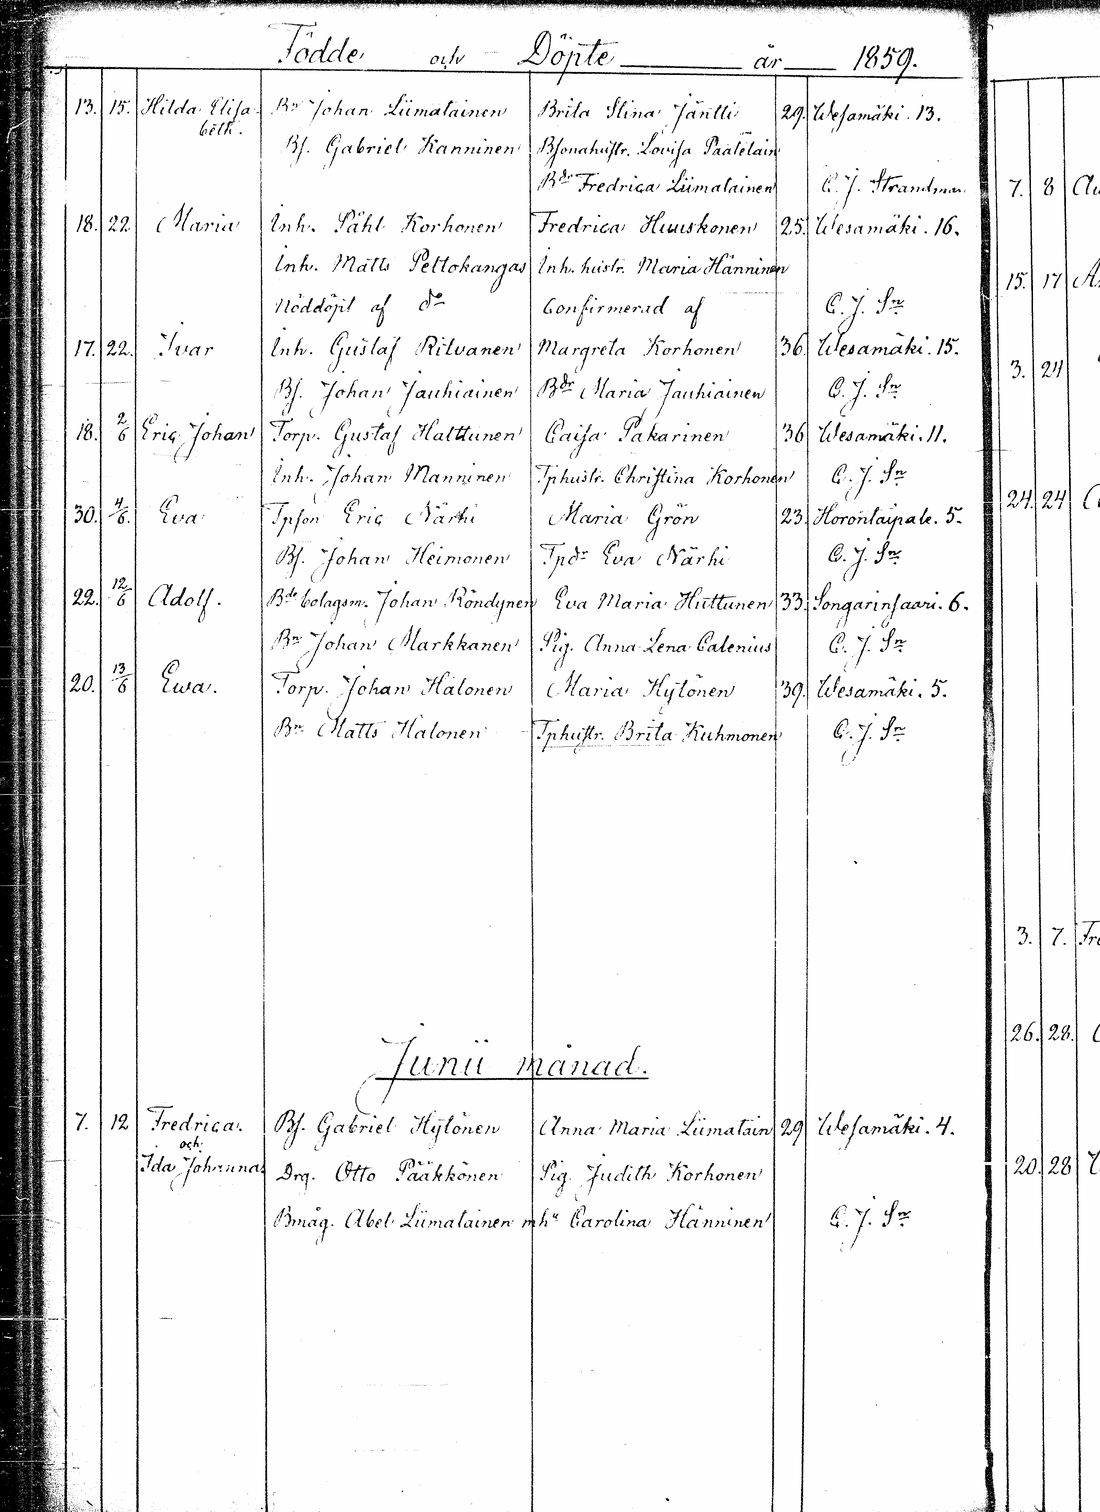 Födde och Döpte år 1859.
13. 15. Hilda Elisa- Bn Johan Liimatainen Brita Stina Jäntti 29. Wesamäki. 13.
beth.
Bs. Gabriel Kanninen Bsonahustr. Lovisa Päätelain
Bdr Fredrica Liimatainen C. J. Strandman
18. 22. Maria Inh. Påhl Korhonen Fredrica Huuskonen 25. Wesamäki. 16.
Inh. Matts Peltokangas Inh. hustr. Maria Hänninen
Nöddöpt af do Confirmerad af C. J. Sn
17. 22. Ivar Inh. Gustaf Ritvanen Margreta Korhonen 36. Wesamäki. 15.
Bs. Johan Jauhiainen Bdr Maria Jauhiainen C. J. Sn
18. 2/6 Eric Johan Torp. Gustaf Halttunen Caisa Pakarinen 36 Wesamäki. 11.
Inh. Johan Manninen Tphustr. Christina Korhonen C. J. Sn
30. 4/6. Eva Tpson Eric Närhi Maria Grön 23. Horontaipale. 5.
Bs. Johan Heimonen Tpdr Eva Närhi C. J. Sn
22. 12/6 Adolf. Bds bolagsm. Johan Röndynen Eva Maria Huttunen 33. Songarinsaari. 6.
Bn Johan Markkanen Pig. Anna Lena Calenius C. J. Sn
20. 13/6 Ewa. Torp. Johan Halonen Maria Hytönen 39. Wesamäki. 5.
Bn Matts Halonen Tphustr. Brita Kuhmonen C. J. Sn
Junii månad.
7. 12 Fredrica. Bs. Gabriel Hytönen Anna Maria Liimatain 29 Wesamäki. 4.
och
Ida Johanna Drg. Otto Pääkkönen Pig. Judith Korhonen
Bmåg. Abel Liimatainen mhu Carolina Hänninen C. J. Sn
7. 8
15. 17
3. 24
24. 24
3. 7.
26. 28.
20. 28